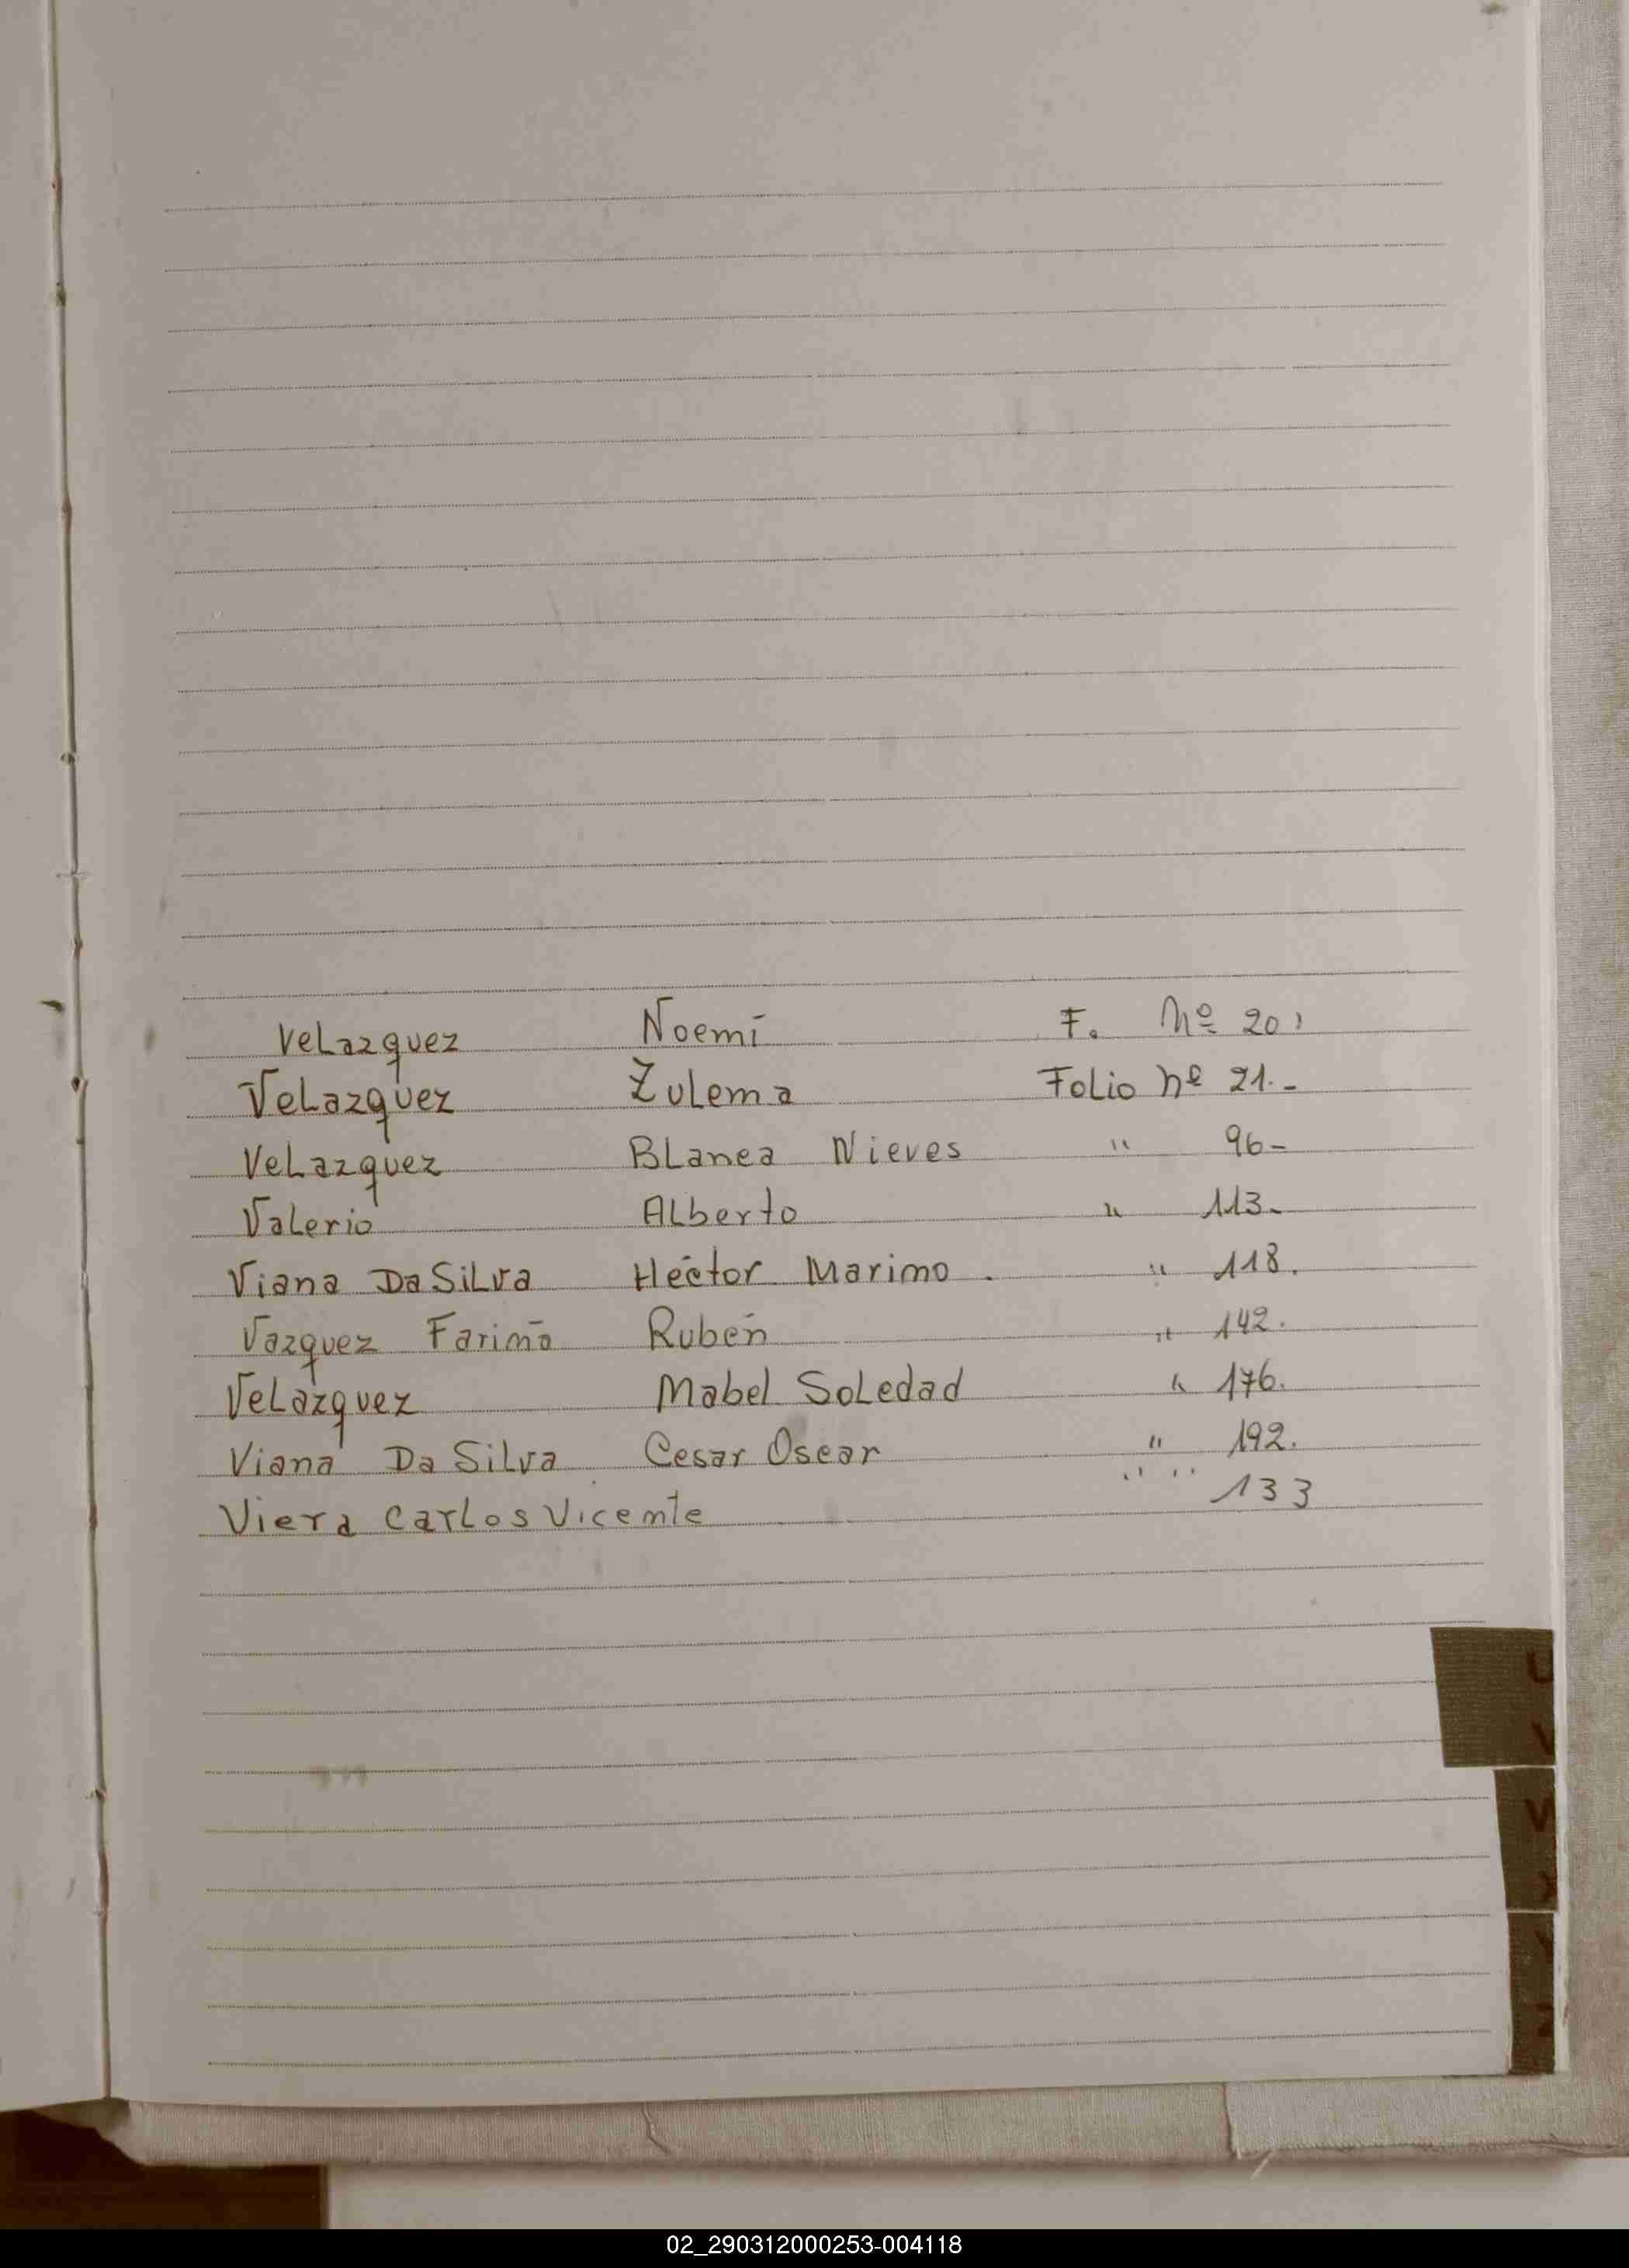 Velazquez Noemí F. Nº 20
Velazquez Zulema Folio Nº 21.-
Velazquez Blanca Nieves " 96-
Valerio Alberto " 113-
Viana Da Silva Héctor Marino . " 118.
Vazquez Fariña Rubén " 142.
Velazquez Mabel Soledad " 176.
Viana Da Silva Cesar Oscar " 192.
Viera Carlos Vicente " " 133
02_290312000253-004118